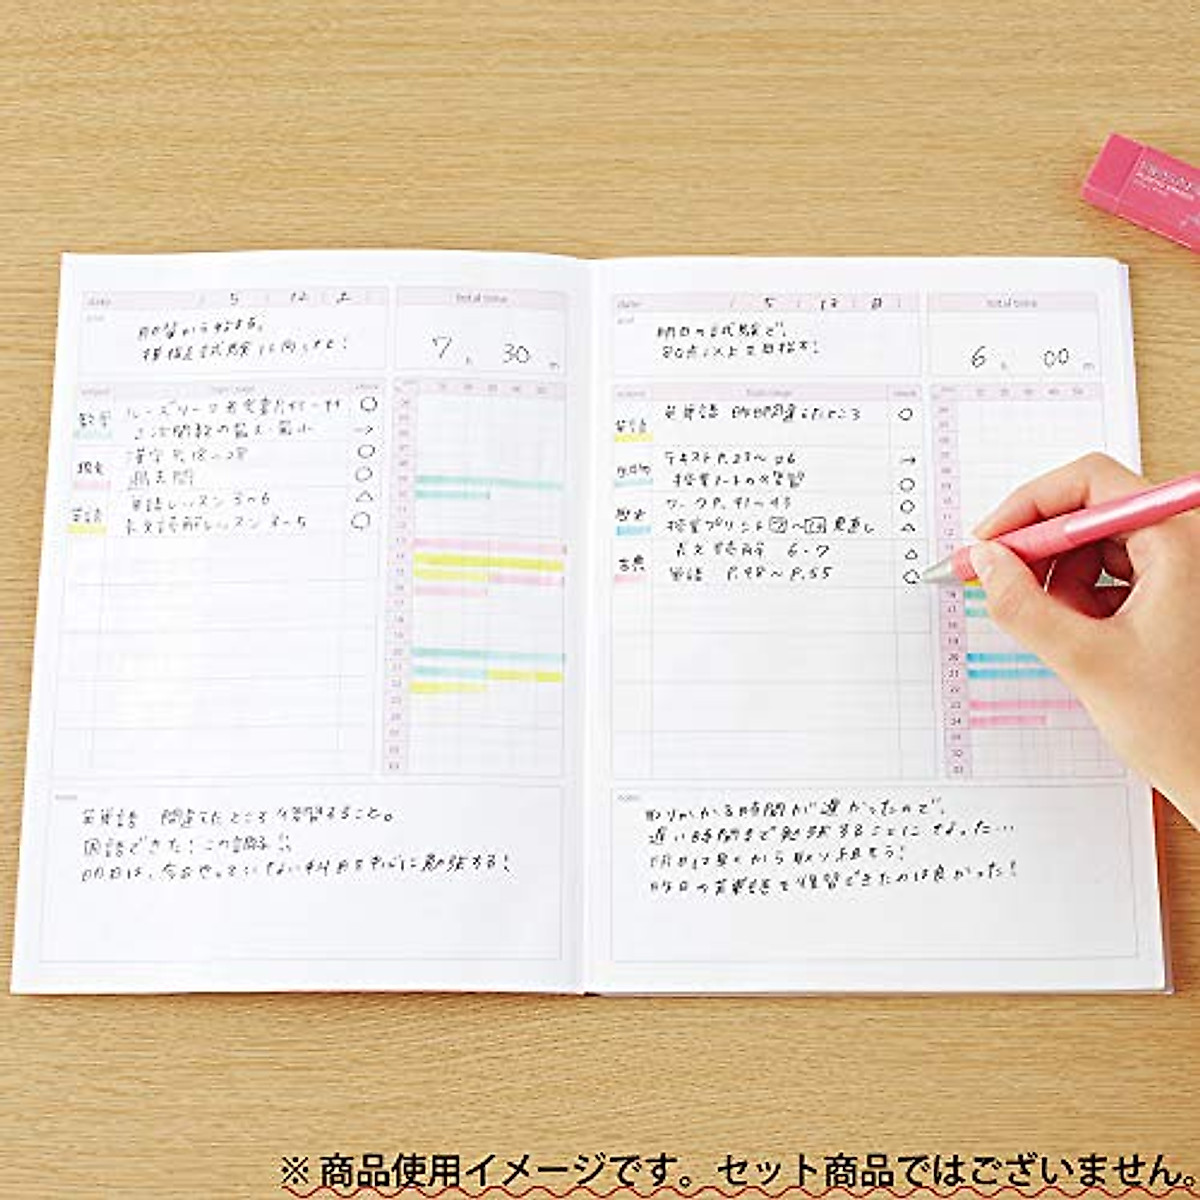 date / 5 / 12 / 土 /
total time
朝習から始める。
模擬試験に向けて!
7 h 30 m
数学
ルーズリーフ
○
2次関数の最大・最小
→
○
過去問
○
英語
単語レッスン3〜6
△
長文読解レッスン3〜5
○
notes
英単語 間違えたところ復習すること。
国語できた!この調子!!
明日は、今日やっていない科目を中心に勉強する!
date / 5 / 13 / 日 /
total time
明日の試験で、
80点以上を目指す!
6 h 00 m
英語
英単語 昨日間違えたところ
○
生物
テキストP.23〜26
→
授業ノートの復習
○
歴史
ワークP.41〜43
○
授業プリント
見直し
△
古典
長文読解 6・7
△
単語 P.48〜P.55
○
notes
取りかかる時間が遅かったので、
遅い時間まで勉強することになった…
明日は早くから取り組もう!
昨日の英単語を復習できたのは良かった!
※商品使用イメージです。セット商品ではございません。